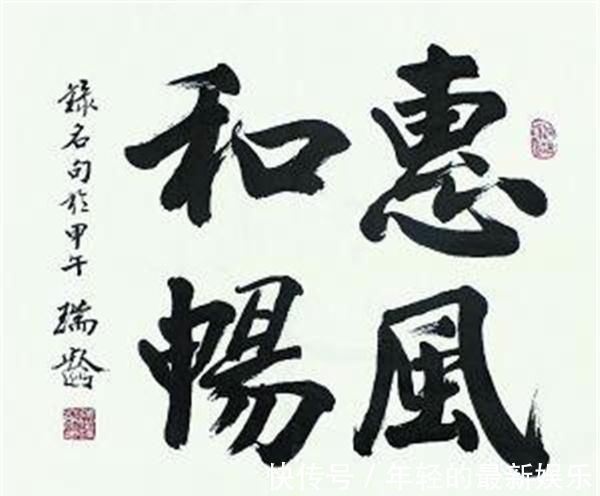 惠風
和暢
錄名句於甲午
瑞齡
快传号/年轻的最新娱乐